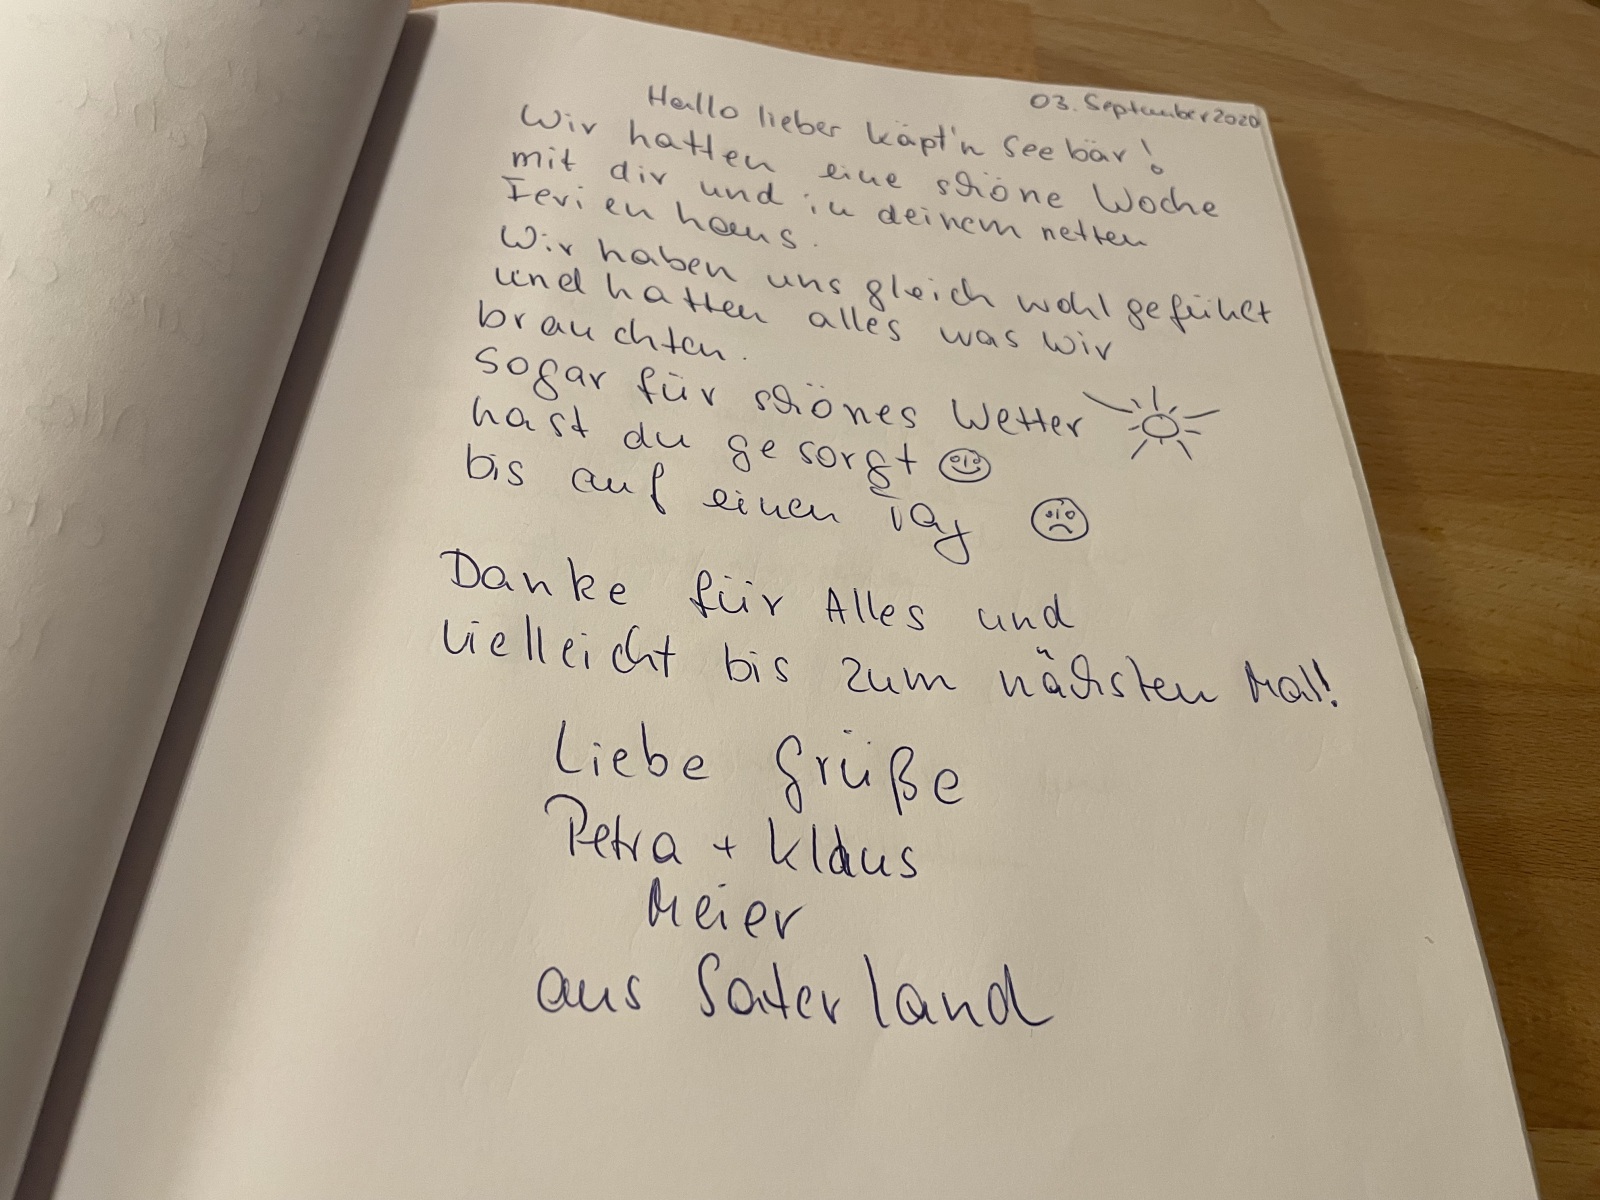 03. September 2020
Hallo lieber Käpt'n Seebär!
Wir hatten eine schöne Woche
mit dir und in deinem netten
Ferienhaus.
Wir haben uns gleich wohl gefühlt
und hatten alles was wir
brauchten.
Sogar für schönes Wetter
hast du gesorgt
bis auf einen Tag
Danke für Alles und
vielleicht bis zum nächsten Mal!
Liebe Grüße
Petra + Klaus
Meier
aus Saterland